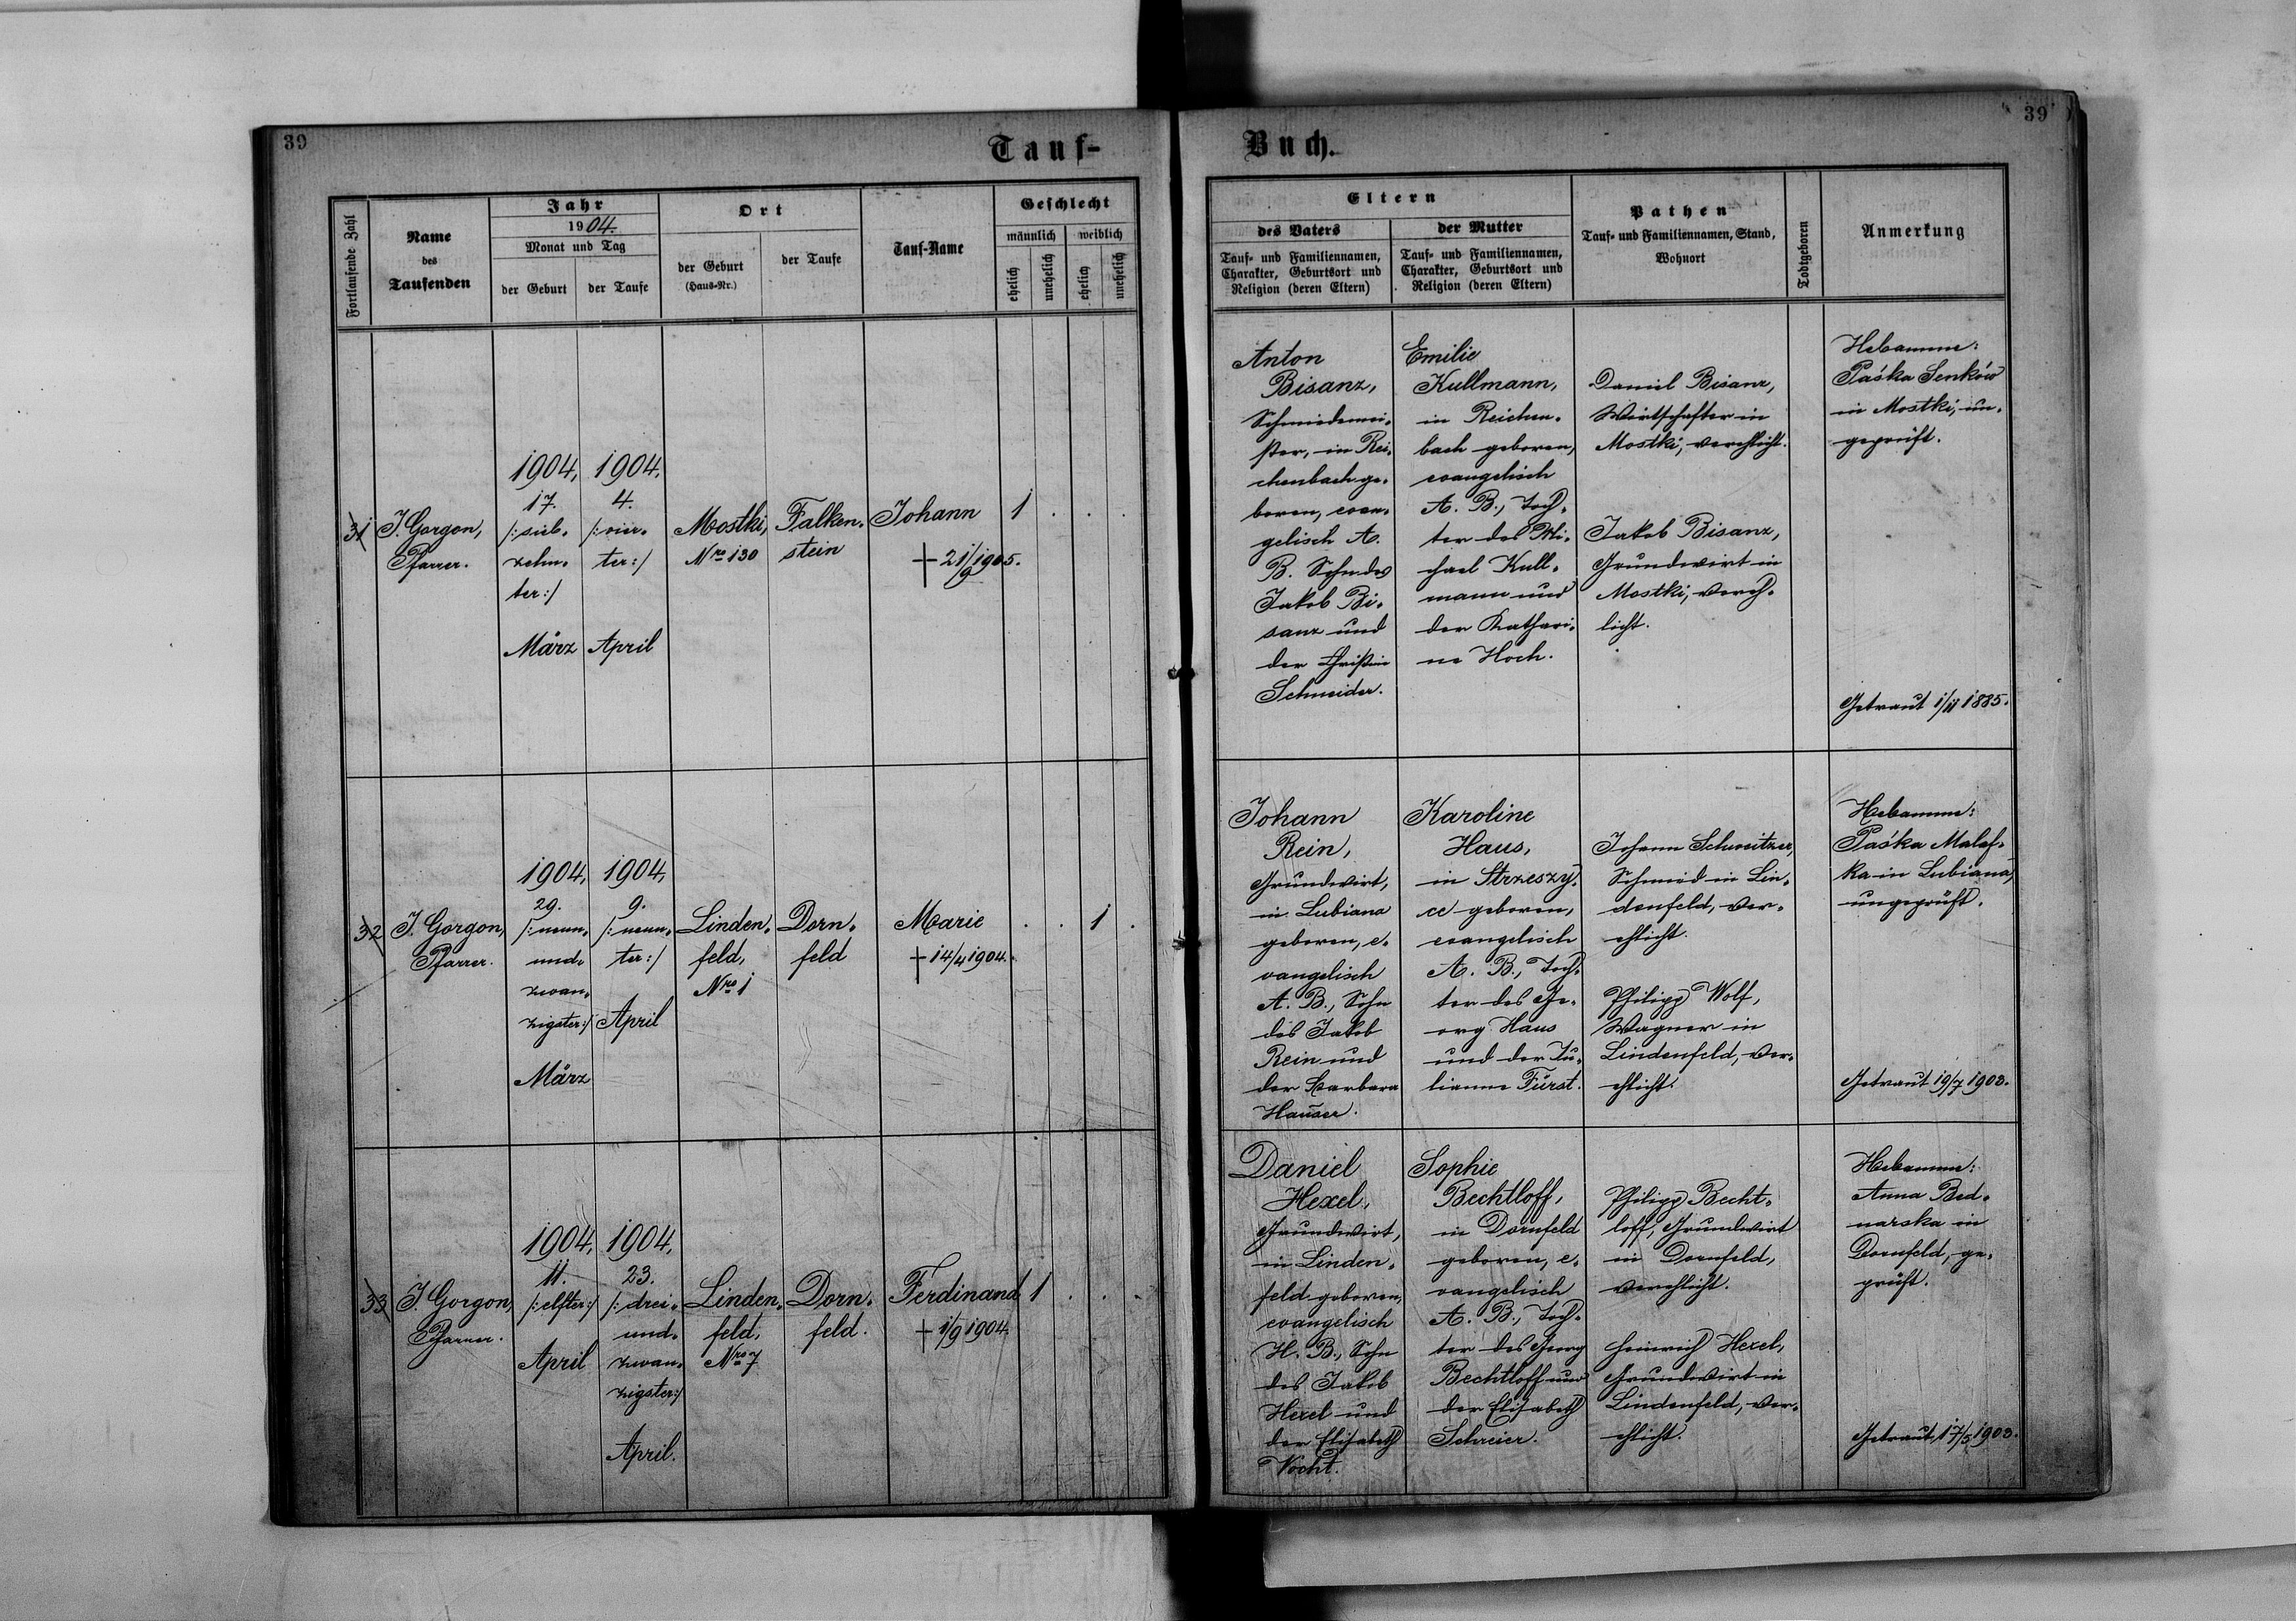 39
Tauf-
Buch.
39
Fortlaufende Zahl
Name
des
Taufenden
Jahr
1904.
Monat und Tag
der Geburt
der Taufe
Ort
der Geburt
(Haus-Nr.)
der Taufe
Tauf-Name
Geschlecht
männlich
weiblich
ehelich
unehelich
ehelich
unehelich
Eltern
des Vaters
Tauf- und Familiennamen,
Charakter, Geburtsort und
Religion (deren Eltern)
der Mutter
Tauf- und Familiennamen,
Charakter, Geburtsort und
Religion (deren Eltern)
Pathen
Tauf- und Familiennamen, Stand,
Wohnort
Todtgeboren
Anmerkung
31
J. Gorgon,
Pfarrer.
1904,
17.
/:sieb-
zehn-
ter:/
März
1904.
4.
/:vier-
ter:/
April
Mostki,
Nro 130
Falken-
stein
Johann
† 21/9 1905.
1 . . .
Anton
Bisanz,
Schmiedemei-
ster, in Rei-
chenbach ge-
boren, evan-
gelisch A.
B. Sohn des
Jakob Bi-
sanz und
der Christine
Schneider.
Emilie
Kullmann,
in Reichen-
bach geboren,
evangelisch
A. B., Toch-
ter des Mi-
chael Kull-
mann und
der Kathari-
ne Hoch.
Daniel Bisanz,
Wirtschafter in
Mostki, verehlicht.
Jakob Bisanz,
Grundwirt in
Mostki, vereh-
licht.
Hebamme:
Paśka Senków
in Mostki, un-
geprüft.
Getraut 1/11 1885.
32
J. Gorgon,
Pfarrer.
1904,
29.
/:neun-
und-
zwan-
zigster:/
März
1904,
9.
/:neun-
ter:/
April
Linden-
feld,
Nro 1
Dorn-
feld
Marie
† 14/4 1904.
. . 1 .
Johann
Rein,
Grundwirt,
in Lubiana
geboren, e-
vangelisch
A. B., Sohn
des Jakob
Rein und
der Barbara
Hauser.
Karoline
Haus,
in Strzeszy-
ce geboren,
evangelisch
A. B., Toch-
ter des Ge-
org Haus
und der Ju-
lianne Fürst.
Johann Schweitzer,
Schmied in Lin-
denfeld, ver-
ehlicht.
Philipp Wolf,
Wagner in
Lindenfeld, ver-
ehlicht.
Hebamme:
Paśka Malaf-
ka in Lubiana,
ungeprüft.
Getraut 19/7 1903.
33
J. Gorgon,
Pfarrer.
1904,
11.
/:elfter:/
April
1904,
23.
/:drei-
und-
zwan-
zigster:/
April.
Linden-
feld,
Nro 7
Dorn-
feld.
Ferdinand
† 1/9 1904.
1 . . .
Daniel
Hexel,
Grundwirt,
in Linden-
feld geboren,
evangelisch
H. B., Sohn
des Jakob
Hexel und
der Elisabeth
Vocht.
Sophie
Bechtloff,
in Dornfeld
geboren, e-
vangelisch
A. B., Toch-
ter des Georg
Bechtloff und
der Elisabeth
Schreier.
Philipp Becht-
loff, Grundwirt
in Dornfeld,
verehlicht.
Heinrich Hexel,
Grundwirt in
Lindenfeld, ver-
ehlicht.
Hebamme:
Anna Bed-
narska in
Dornfeld, ge-
prüft.
Getraut 17/5 1903.